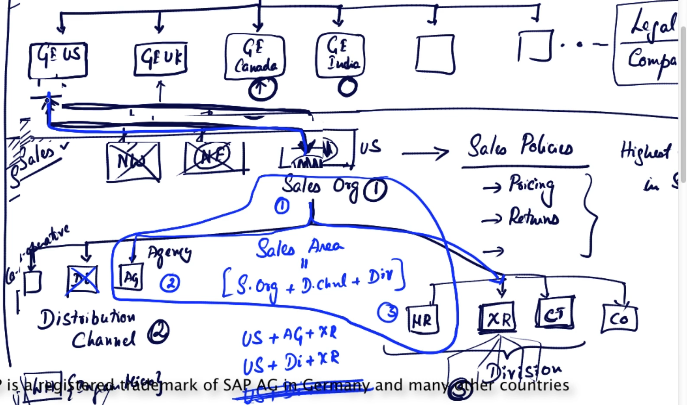 GE US
GE UK
GE
Canada
GE
India
Legal
Compa
Sales
NW
NE
US
Sales Policies
→ Pricing
→ Returns
→
Highest
in S
Sales Org ①
①
Co-operative
Agency
Ag
②
Sales Area
=
[S.Org + D.chnl + Div]
③
HR
XR
CT
CO
Distribution
Channel ②
US + AG + XR
US + Di + XR
Division
③
P is a registered trademark of SAP AG in Germany and many other countries